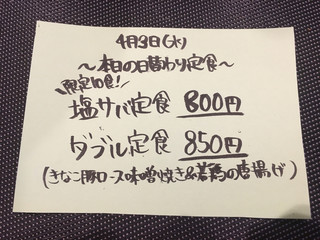 4月3日(火)
〜本日の日替わり定食〜
限定10食!
塩サバ定食 800円
ダブル定食 850円
(きなこ豚ロース味噌焼き&若鶏の唐揚げ)